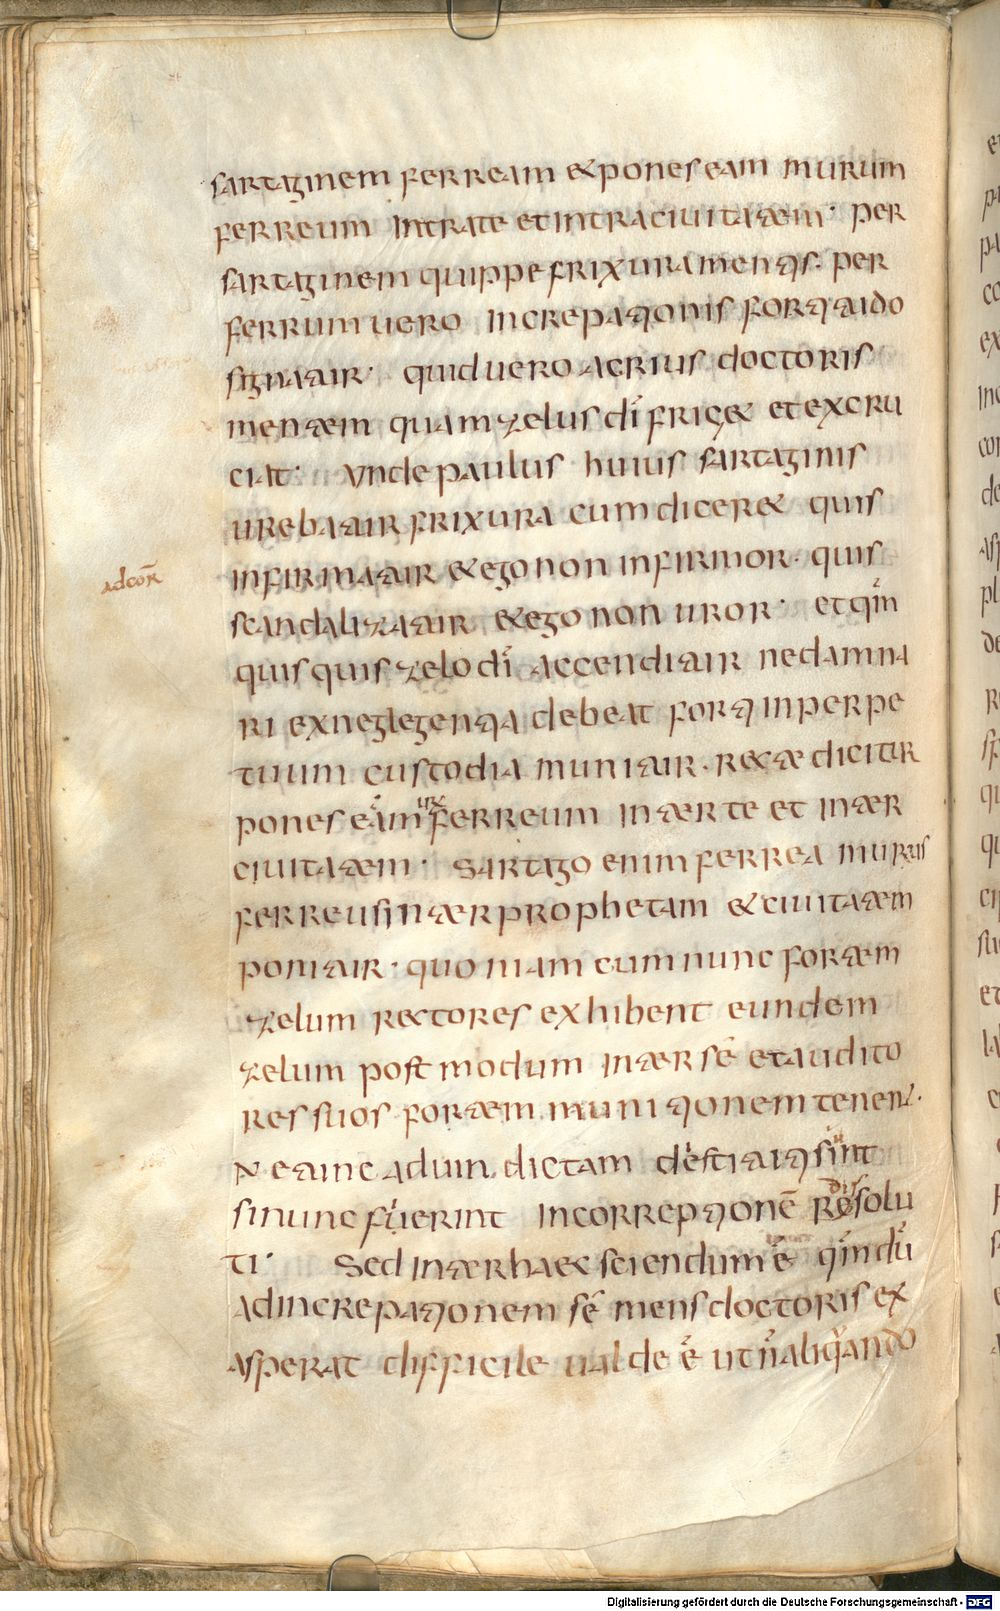 sartaginem ferream & pones eam murum
ferreum inter te et inter ciuitatem · per
sartaginem quippe frixura mentis · per
ferrum uero increpationis fortitudo
signatur · quid uero acrius doctoris
mentem quam zelus dī frig& et excru
ciat · Unde paulus huius sartaginis
urebatur frixura cum dicer& quis
infirmatur & ego non infirmor · quis
adcor̄
scandalizatur & ego non uror · et qm̄
quisquis zelo dī accenditur ne damna
ri ex neglegentia debeat forti inperpe
tuum custodia munitur · recte dicitur
pones eam ferreum inter te et inter
ciuitatem · Sartago enim ferrea murus
ferreus inter prophetam & ciuitatem
ponitur · quoniam cum nunc fortem
zelum rectores exhibent eundem
zelum post modum inter sē et audito
res suos fortem munitionem tenent ·
sinunc fuerint incorreptionē
ti · Sed inter haec sciendum ē qm̄ dū
ad increpationem sē mens doctoris ex
asperat difficile ualde ē ut n̄ aliquando
Digitalisierung gefördert durch die Deutsche Forschungsgemeinschaft - DFG